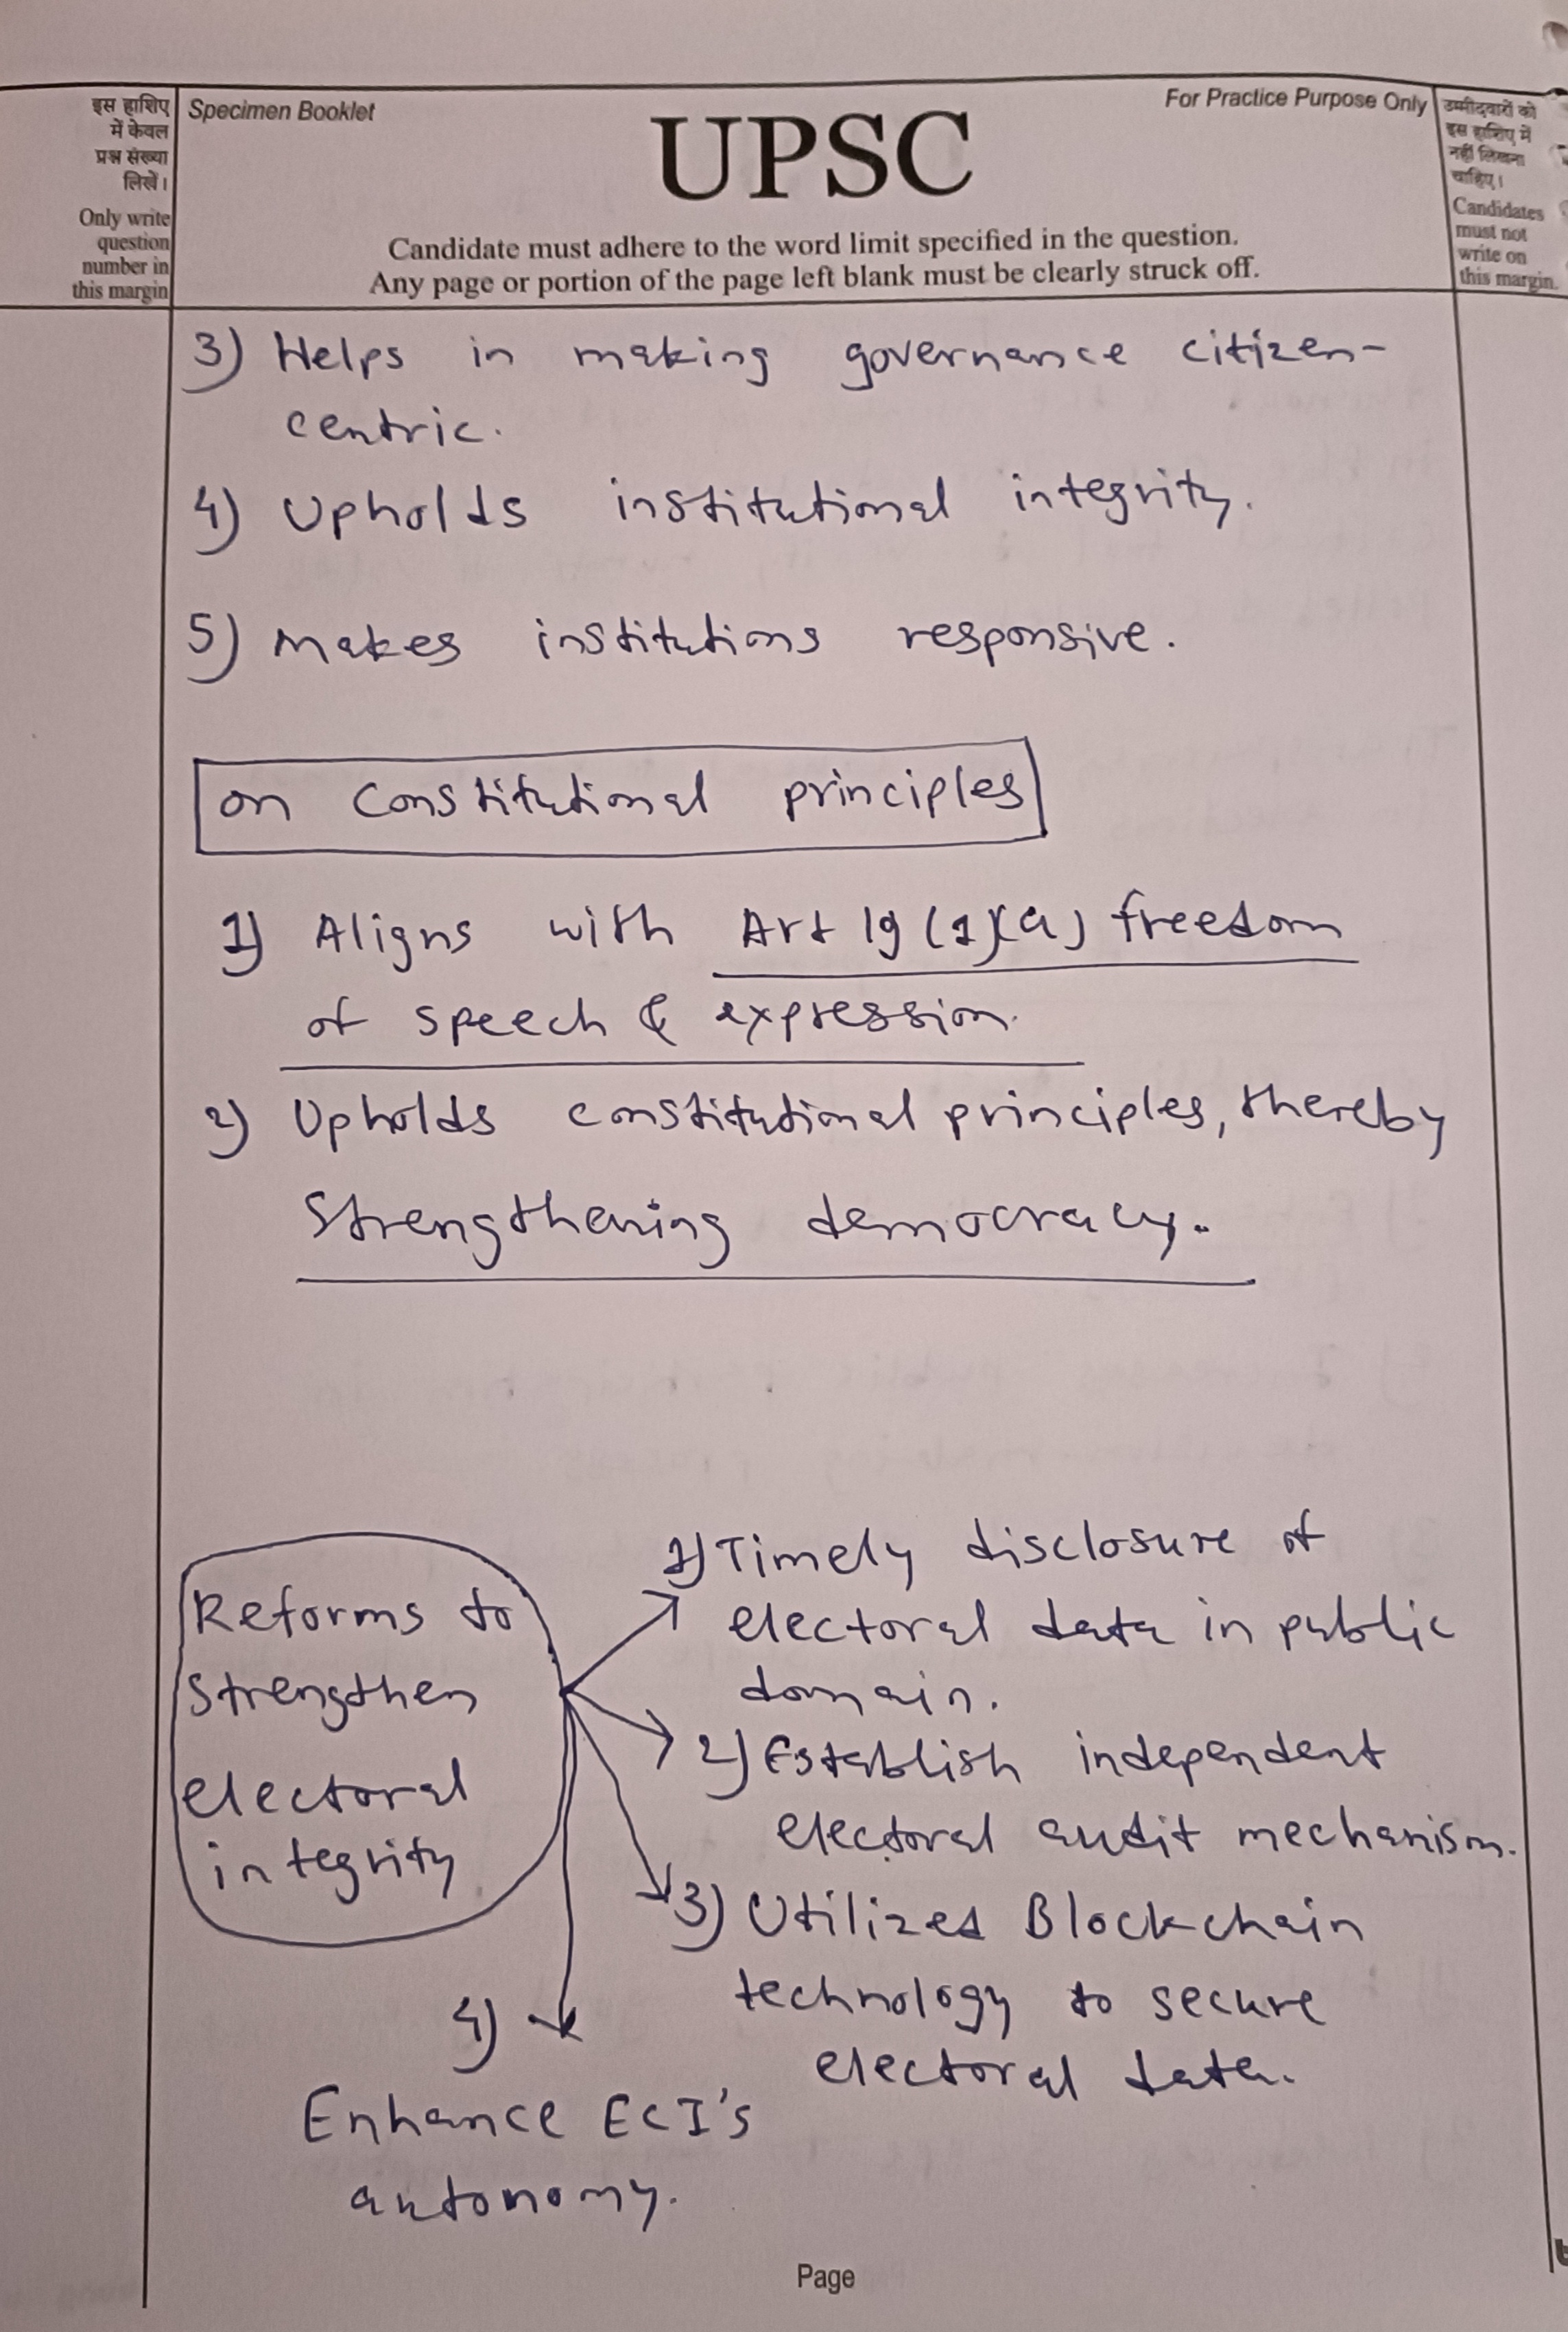 इस हाशिए
में केवल
प्रश्न संख्या
लिखें।
Only write
question
number in
this margin
Specimen Booklet
For Practice Purpose Only
UPSC
Candidate must adhere to the word limit specified in the question.
Any page or portion of the page left blank must be clearly struck off.
उम्मीदवारों को
इस हाशिए में
नहीं लिखना
चाहिए।
Candidates
must not
write on
this margin.
3) Helps in making governance citizen-
centric.
4) Upholds institutional integrity.
5) Makes institutions responsive.
on constitutional principles
1) Aligns with Art 19 (1)(a) freedom
of speech & expression.
2) Upholds constitutional principles, thereby
strengthening democracy.
Reforms to
strengthen
electoral
integrity
1) Timely disclosure of
electoral data in public
domain.
2) Establish independent
electoral audit mechanism.
3) Utilizes Blockchain
technology to secure
electoral data.
4)
Enhance ECI's
autonomy.
Page